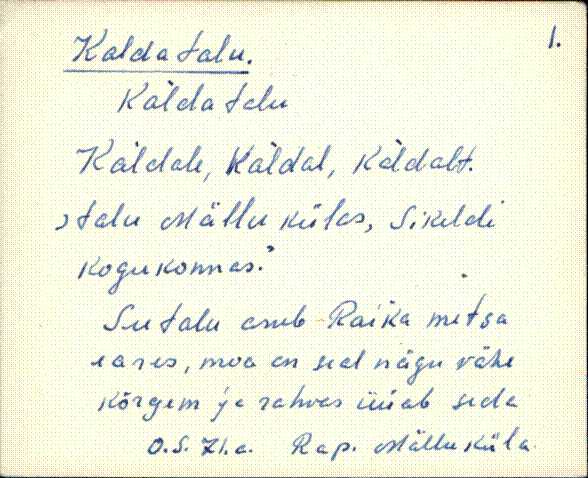 1.
Kalda talu.
Kàlda talu
Kàldale, Kàldal, Kàldalt.
„talu Mällu külas, Sikeldi
kogukonnas."
See talu asub Raika metsa
eares, moa on seal nàgu vähe
kõrgem ja rahvas üiab seda
O.S. 71.a. Rap. Mällu küla.